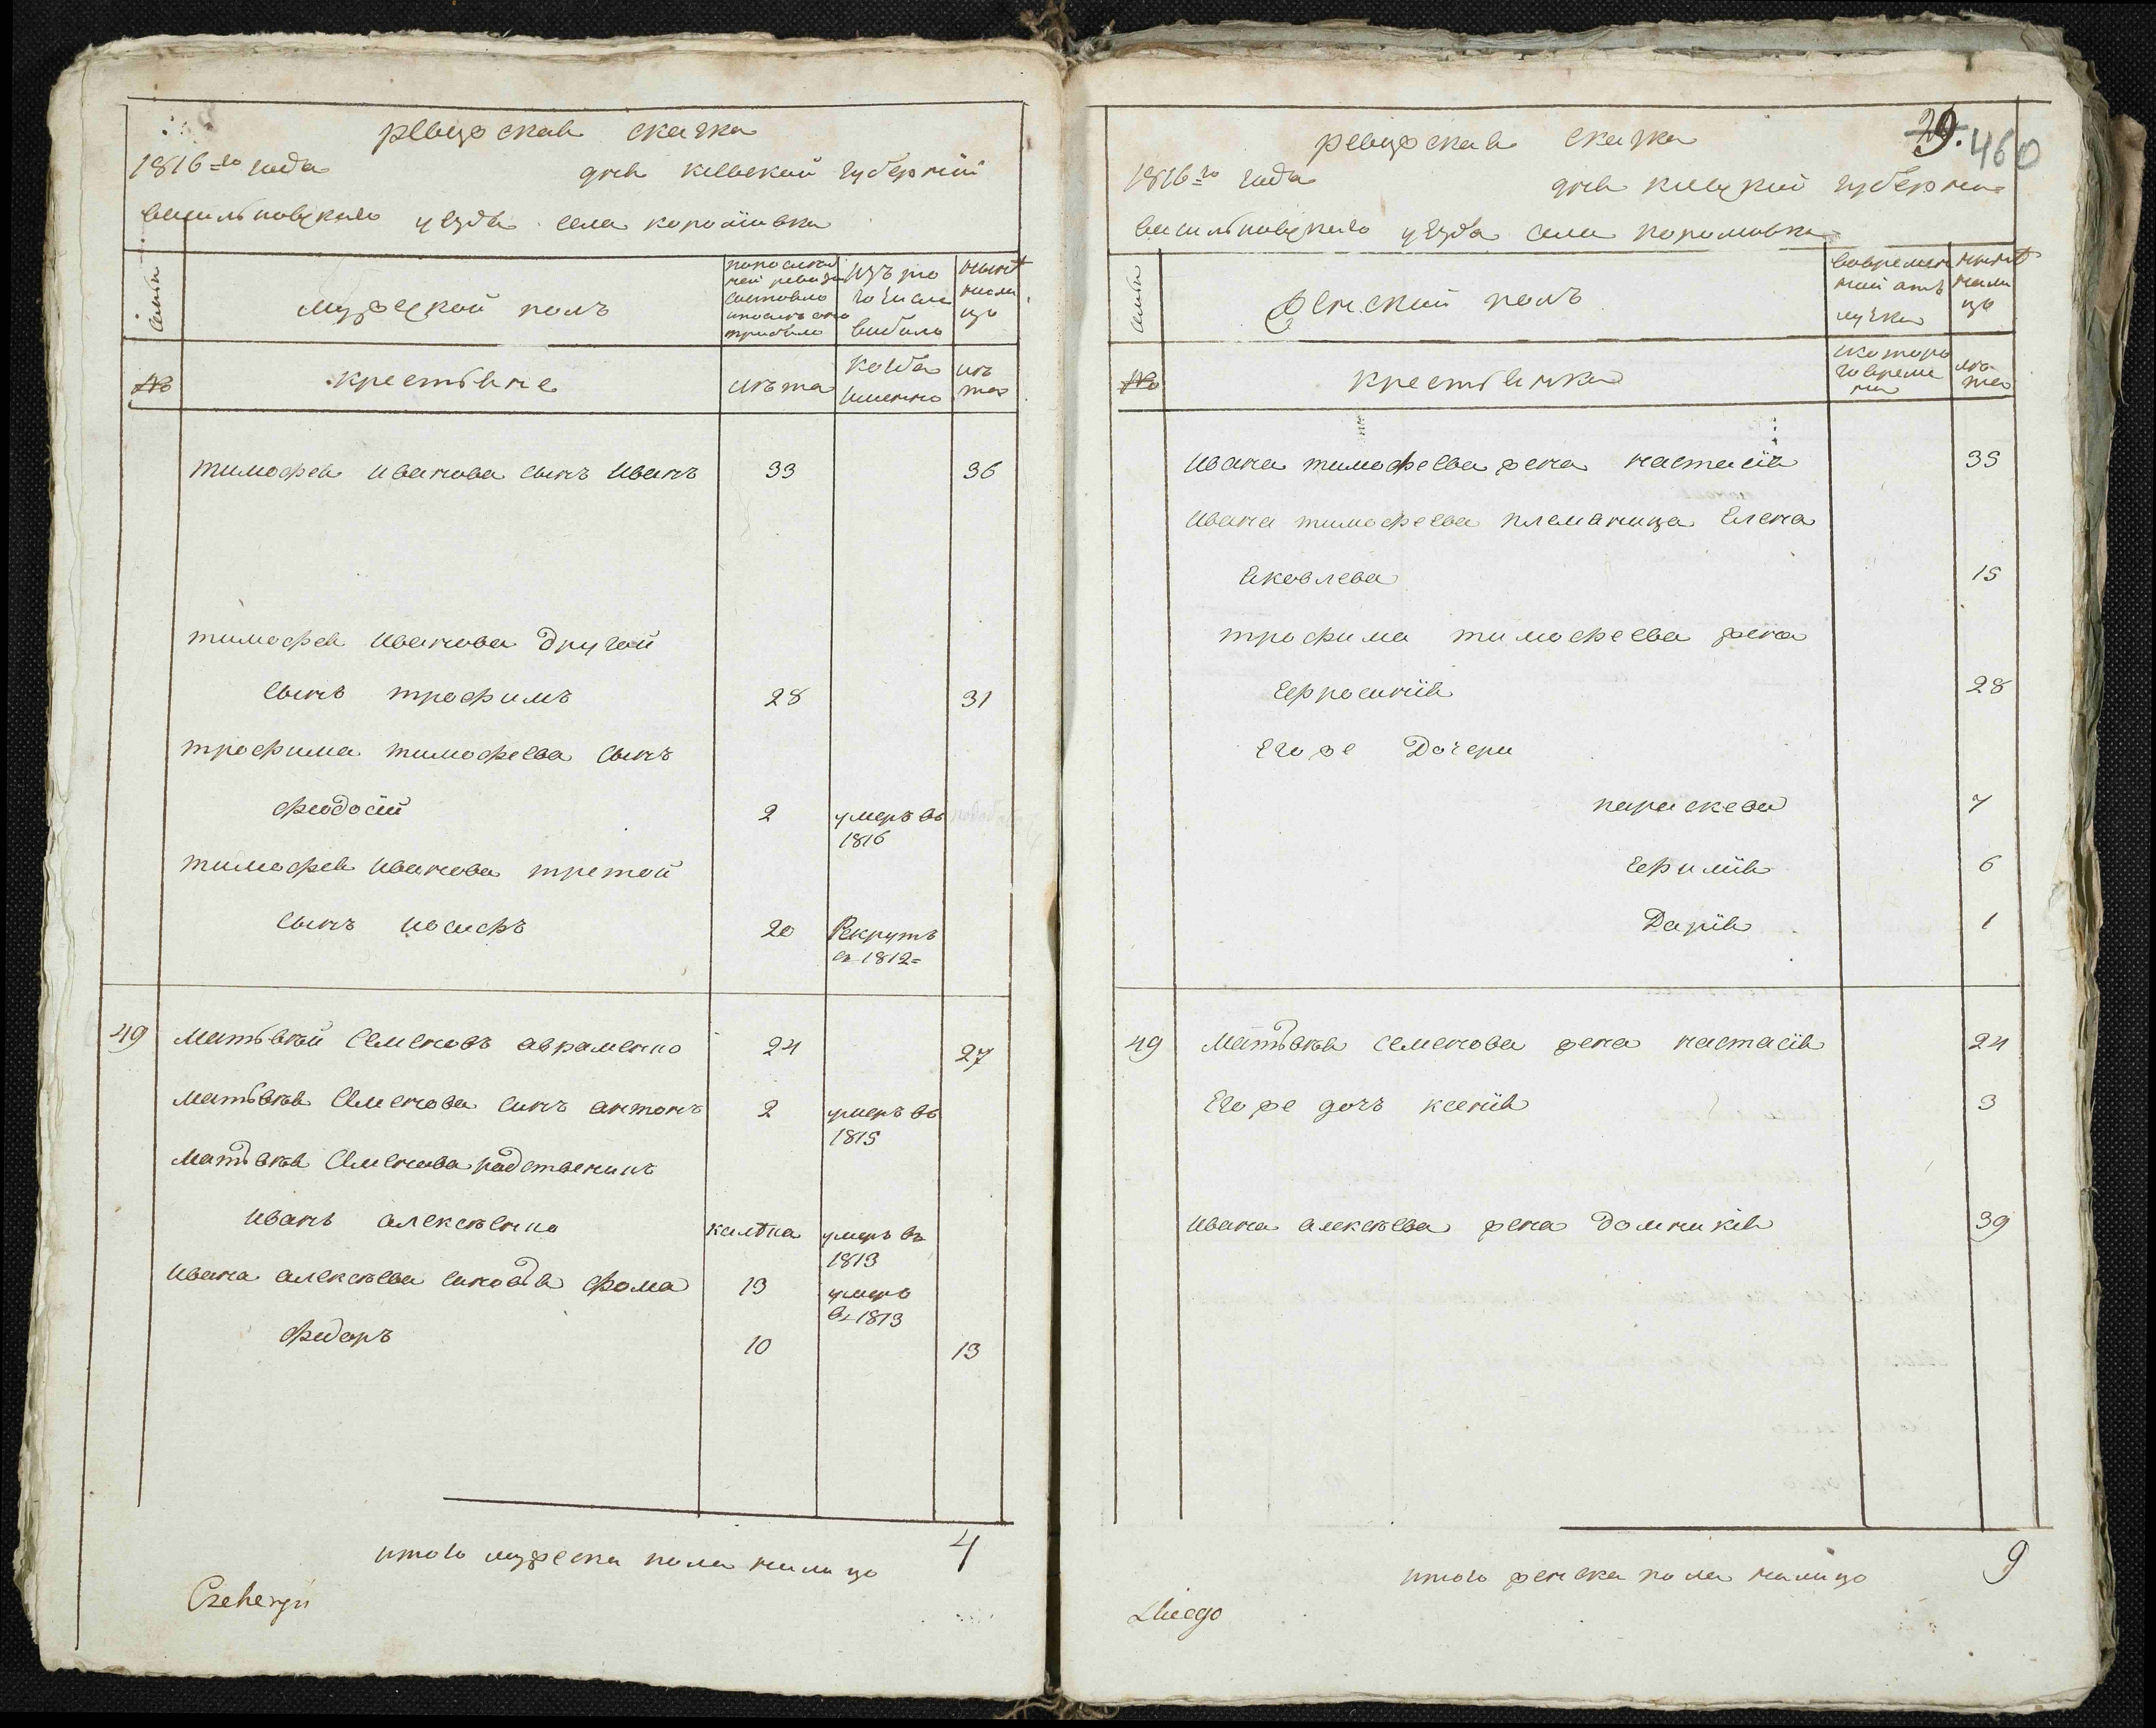 ревизская сказка
1816=го года дня киевской губернии
васильковского уезда села королювка
семьи
мужеской полъ
по последней ревизии состояло и после оно прибыло
изъ того числа выбыло
ныне на лицо
№
крестьяне
лѣта
когда именно
лѣта
тимофея иванова сынъ иванъ 33 36
тимофея иванова другой
сынъ трофимъ 28 31
трофима тимофеева сынъ
феодосий 2 умеръ въ
1816
тимофея иванова третой
сынъ иосифъ 20 Рекрутъ
въ 1812=
49 матвѣй семеновъ авраменко 24 27
матвѣя семенова синъ антонъ 2 умеръ въ
1815
матвѣя семенова родственикъ
иванъ алексѣенко калѣка умеръ въ
1813
ивана алексѣева сыновья фома 13 умеръ
въ 1813
федоръ 10 13
итого мужеска пола налицо 4
29. 460
ревизская сказка
1816=го года дня киевской губерни=
васильковского уезда села королювка
семьи
Женский полъ
во временной отълучки
ныне налицо
№
крестьянки
и скотораго времени
лѣта
ивана тимофеева жена настасія 35
ивана тимофеева племаница Елена
яковлева 15
трофима тимофеева жена
Ефросинія 28
Его же Дочери
параскева 7
Ефимія 6
Дарія 1
49 матвѣя семенова жена настасія 24
Его же дочъ ксенія 3
ивана алексѣева жена домникія 39
итого женска пола налицо 9